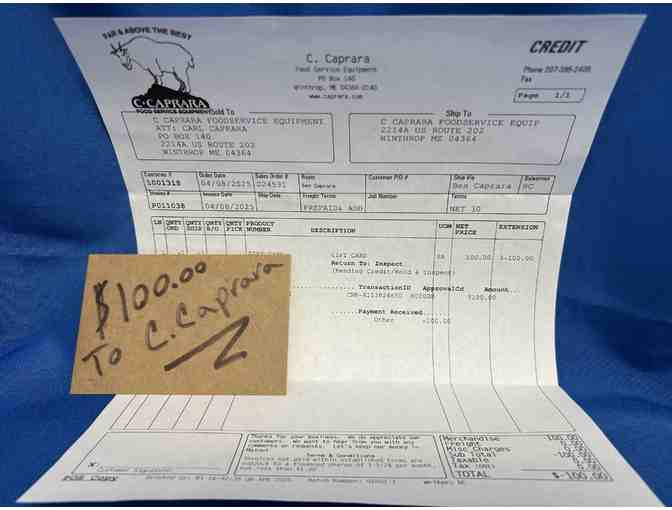 FAR & ABOVE THE BEST
C·CAPRARA
FOOD SERVICE EQUIPMENT
C. Caprara
Food Service Equipment
PO Box 140
Winthrop, ME 04364-0140
www.caprara.com
CREDIT
Phone 207-395-2400
Fax
Page 1/1
Sold To
C CAPRARA FOODSERVICE EQUIPMENT
ATT: CARL CAPRARA
PO BOX 140
2214A US ROUTE 202
WINTHROP ME 04364
Ship To
C CAPRARA FOODSERVICE EQUIP
2214A US ROUTE 202
WINTHROP ME 04364
Customer # Order Date Sales Order # Buyer Customer P/O # Ship Via Salesman
1001318 04/08/2025 024531 Ben Caprara Ben Caprara BC
Invoice # Invoice Date Ship Date Freight Terms Job Number Terms
P011038 04/08/2025 PREPAID& ADD NET 10
LN QNTY ORD QNTY SHIP QNTY B/O QNTY PICK PRODUCT NUMBER DESCRIPTION UOM NET PRICE EXTENSION
GIFT CARD EA 100.00 $-100.00
Return To: Inspect
(Pending Credit/Hold & Inspect)
TransactionID ApprovalCd Amount
Payment Received
Other -100.00
$100.00
To C. Caprara
Thanks for your business. We do appreciate our
customers. We want to hear from you with any
comments or requests. Let's keep our money in
Maine!
Terms & Conditions
Invoices not paid within established terms are
subject to a financed charge of 1-1/2% per month,
Merchandise 100.00
Freight 0.00
Misc Charges 0.00
Sub Total -100.00
Taxable 0.00
Tax 0.00
TOTAL $-100.00
X:
Customer Signature